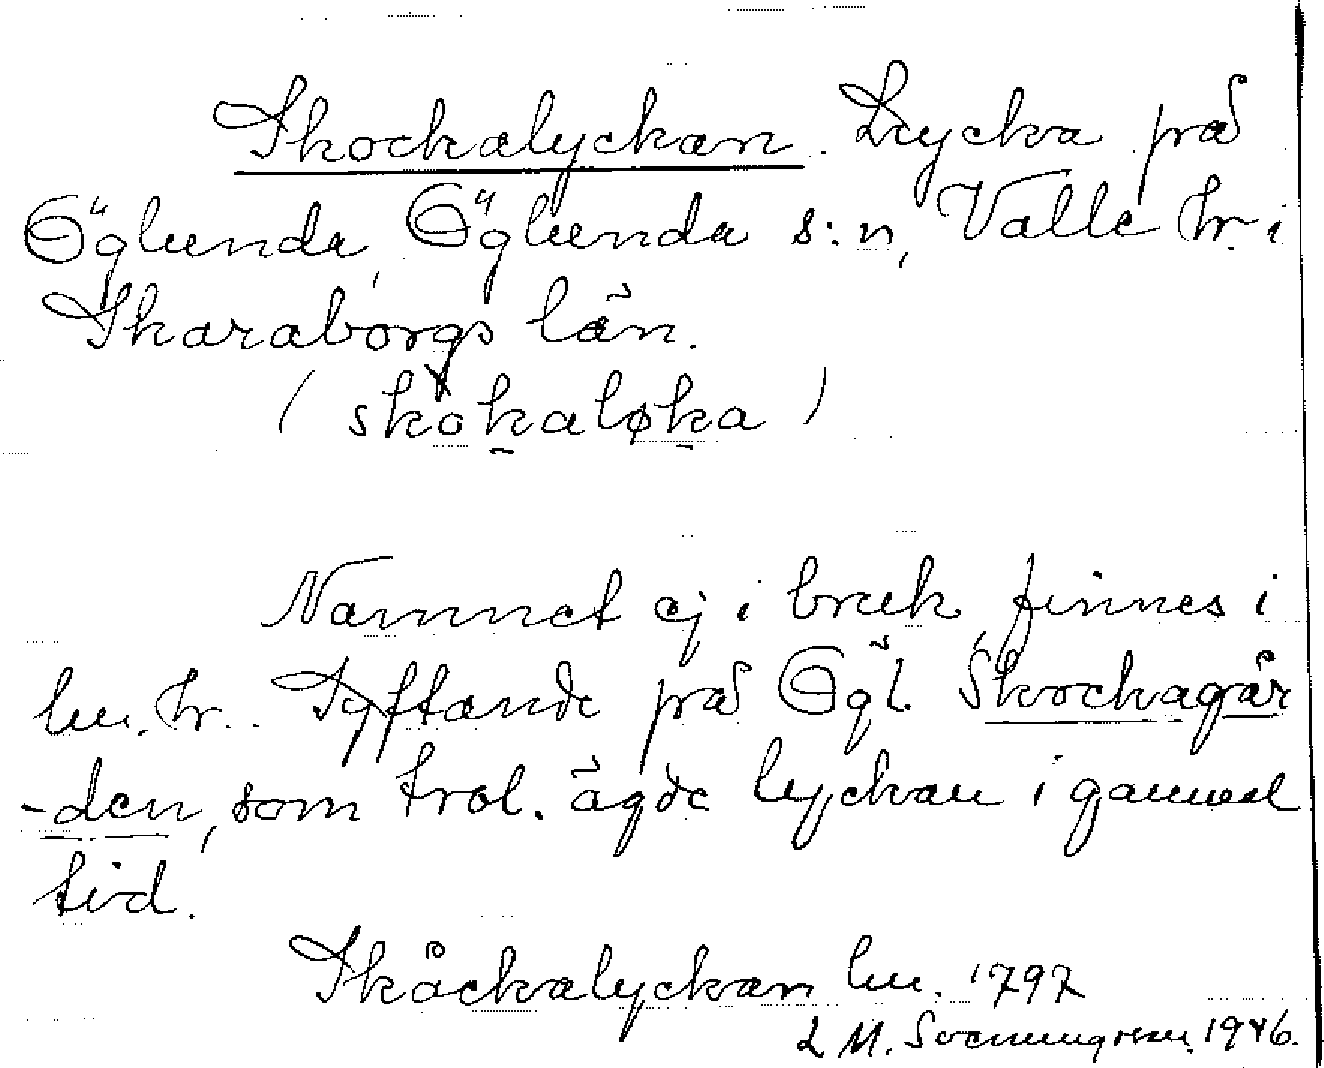 Skockalyckan. Lycka på
Öglunda, Öglunda s:n, Valle hr. i
Skaraborgs län.
( skokaløka )
Namnet ej i bruk, finnes i
lu. hr. Syftande på Ögl. Skockagår
-den, som trol. ägde lyckan i gammal
tid.
Skåckalyckan lu. 1797
L M. Svenungsson. 1946.